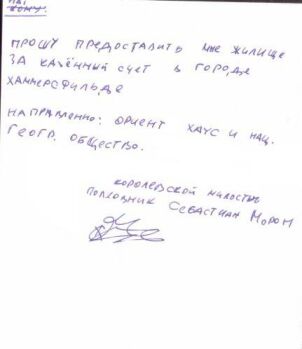 кому.
прошу предоставить мне жилище
за казённый счет в городе
Хаммерсфильде
направленно: Ориент Хаус и нац.
геогр. общество.
королевской милостью
полковник Себастиан Моран